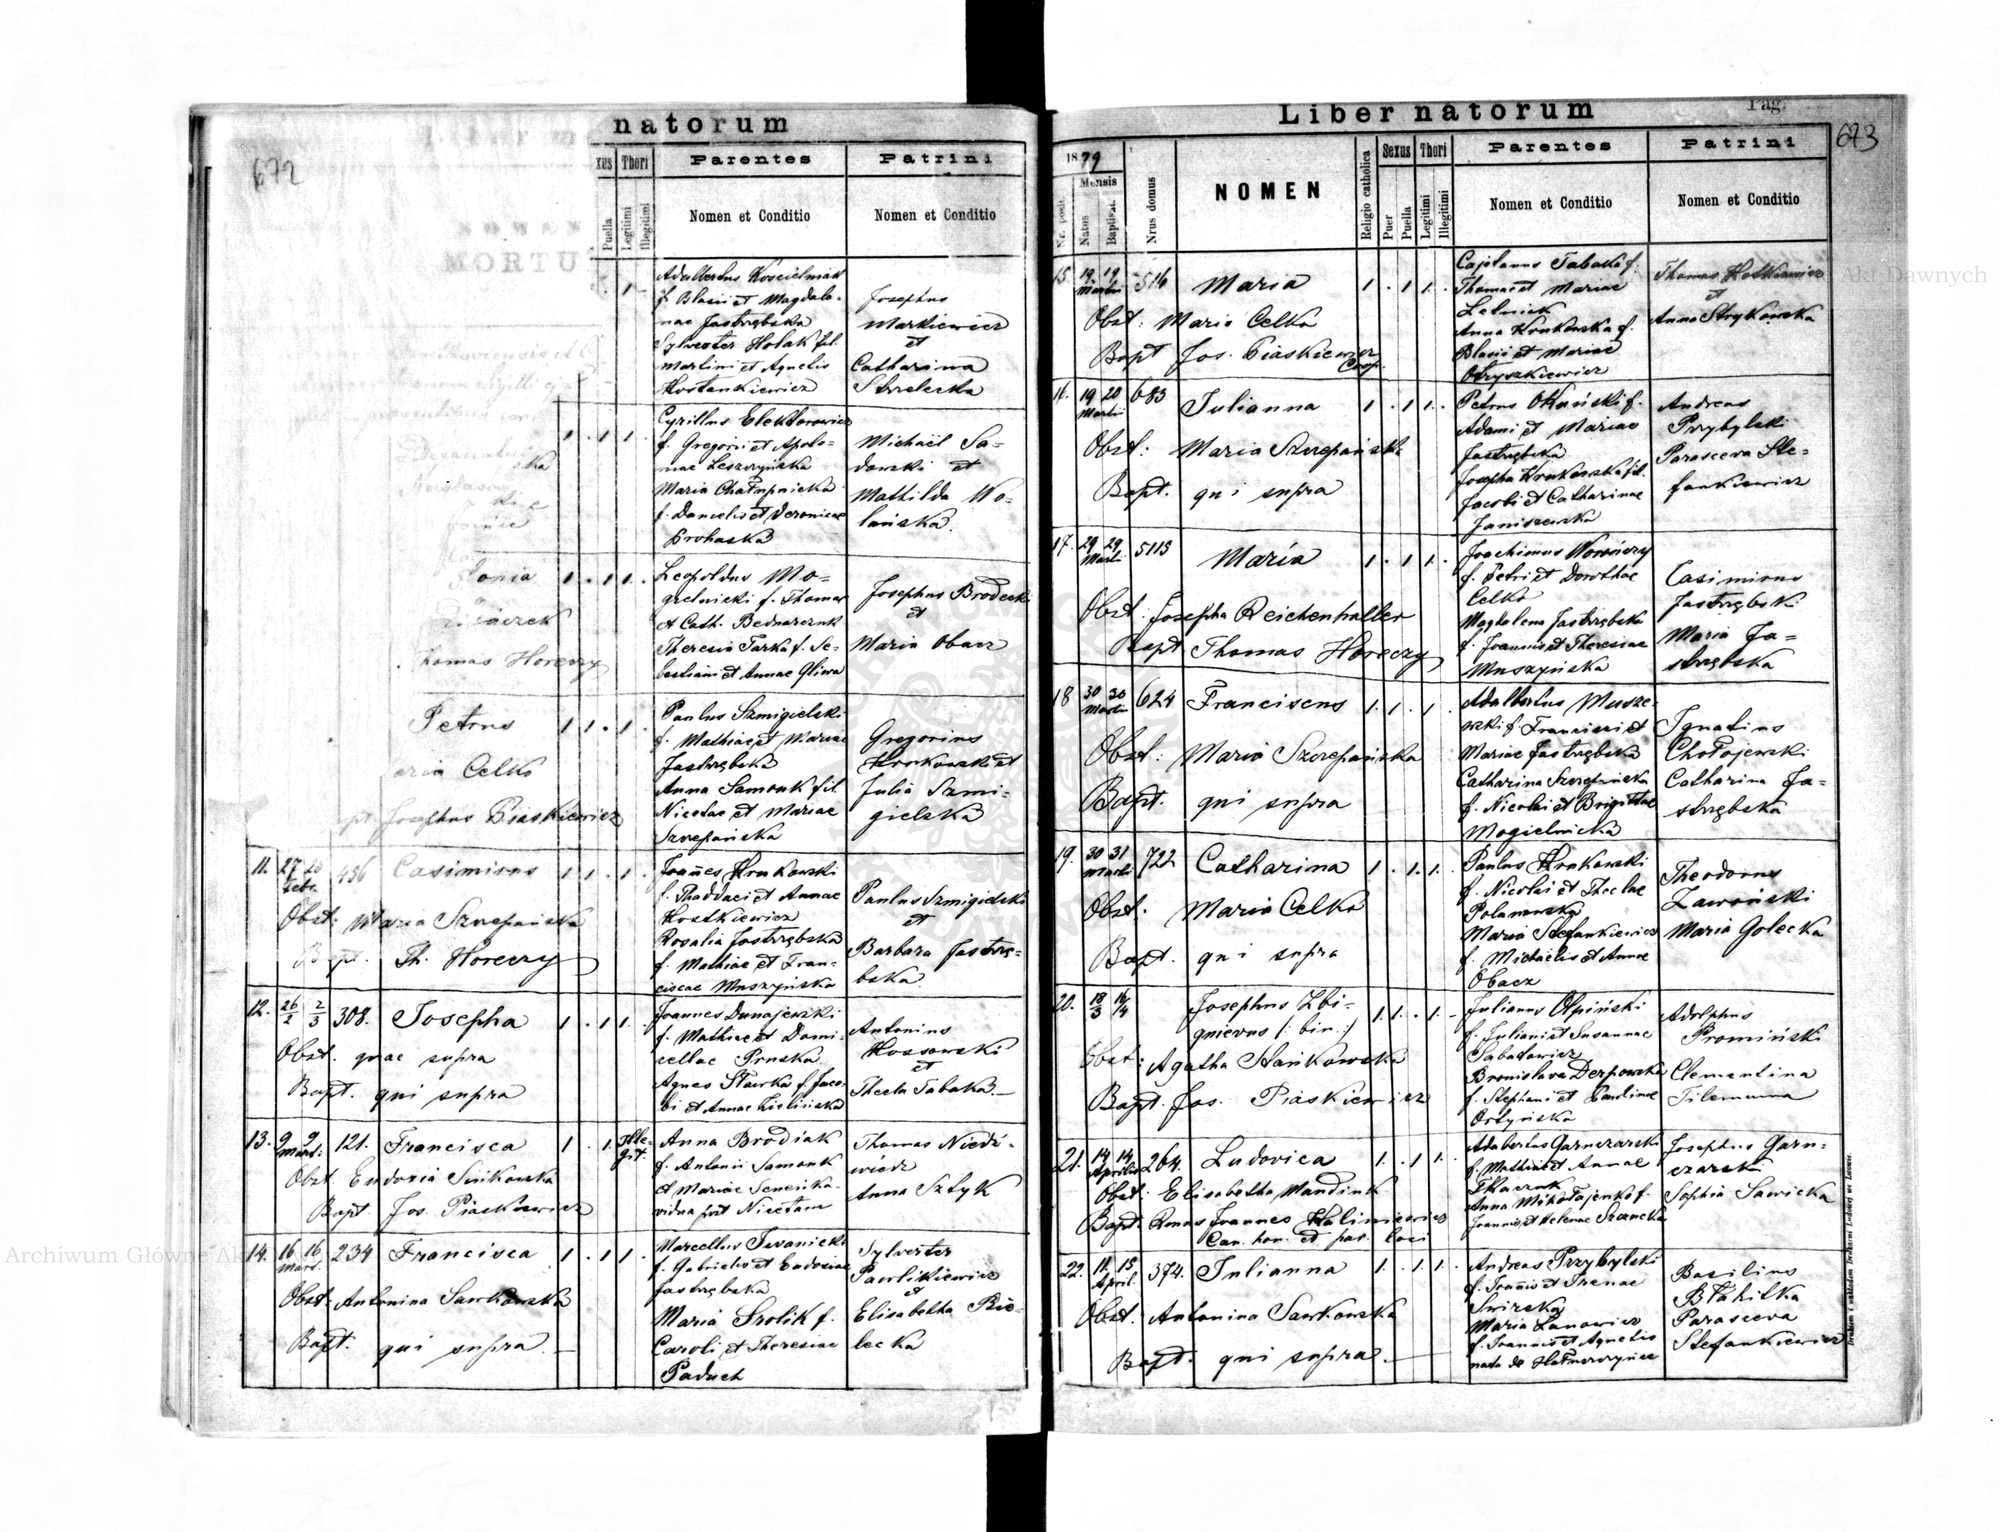 natorum
672
xus Thori Parentes Patrini
Puella Legitimi Illegitimi Nomen et Conditio Nomen et Conditio
Adalbertus Kościelniak
f. Blasii et Magdale-
nae Jastrzębska
Sylvester Holak fil.
Martini et Agnetis
Kostankiewicz
Josephus
Markiewicz
et
Catharina
Strzelecka
Cyrillus Elektorowicz
f. Gregorii et Apolo-
niae Leszczyńska
Maria Chałupnicka
f. Danielis et Veronicae
Prohaska
Michaël Sa-
dowski et
Mathilda Wo-
lańska.
Leopoldus Mo-
gielnicki f. Thomae
et Cath. Bednarczuk
Theresia Tarka f. Se-
bastiani et Annae Gliwa
Josephus Brodecki
et
Maria Obacz
Thomas Horeczy
Petrus 1 1 . 1
Maria Celko
Bapt Josephus Piaskiewicz
Paulus Szmigielski
f. Mathiae et Mariae
Jastrzębska
Anna Samouk fil.
Nicolae et Mariae
Szczepańska
Gregorius
Krokowski et
Julia Szmi-
gielska
11. 27 Febr. 436 Casimirus 1 1 . 1
Obst: Maria Szczepańska
Bapt. Th. Horeczy
Joannes Krukowski
f. Thaddaei et Annae
Hostkiewicz
Rosalia Jastrzębska
f. Mathiae et Fran-
ciscae Muszyńska
Paulus Szmigielski
et
Barbara Jastrzę-
bska
12. 26/2 2/3 308. Josepha 1 . 1 1.
Obst. quae supra
Bapt. qui supra
Joannes Dunajewski
f. Mathiae et Domi-
cellae Pruska
Agnes Sławka f. Jaco-
bi et Annae Zielińska
Antonius
Kossowski
et
Thecla Tabaka.
13. 9 9 Mart. 121. Francisca 1 . 1 Ille-
git.
Obst. Eudoxia Sieńkowska
Bapt. Jos. Piaskiewicz
Anna Brodiak
f. Antonii Samouk
et Mariae Seneńka
vidua post Nicetam
Thomas Niedź-
wiedz
Anna Sztyk
14. 16 16 Mart. 234 Francisca 1 . 1 1.
Obst: Antonina Sawkowska
Bapt. qui supra.
Marcellus Iwanicki
f. Gabrielis et Eudoxiae
Jastrzębska
Maria Srolik f.
Caroli et Theresiae
Paduch
Sylvester
Pawlikiewicz
et
Elisabetha Bie-
lecka
Liber natorum Pag.
673
1879 Mensis NOMEN Sexus Thori Parentes Patrini
Nr. posit. Natus Baptisat. Nrus domus Religio catholica Puer Puella Legitimi Illegitimi Nomen et Conditio Nomen et Conditio
15. 19 19 Martii 516 Maria 1 . 1 1.
Obst: Maria Celka
Bapt Jos. Piaskiewicz
Coop.
Cajetanus Tabaka f.
Thomae et Mariae
Letniak
Anna Krukowska f.
Blasii et Mariae
Obryszkiewicz
Thomas Hostkiewicz
et
Anna Strykowska
16. 19 20 Martii 683 Julianna 1 . 1 1.
Obst: Maria Szczepańska
Bapt. qui supra
Petrus Okuński f.
Adami et Mariae
Jastrzębska
Josepha Krukowska fil.
Jacobi et Catharinae
Janiszewska
Andreas
Przybylski
Parasceva Ste-
fankiewicz
17. 29 29 Martii 5115 Maria 1. . 1 1.
Obst. Josepha Reichenhalter
Bapt Thomas Horeczy
Joachimus Worończy
f. Petri et Dorothae
Celko
Magdalena Jastrzębska
f. Joannis et Theresiae
Muszyńska
Casimirus
Jastrzębski
Maria Ja-
strzębska
18 30 30 Martii 624 Franciscus 1. 1 . 1
Obst: Maria Szczepańska
Bapt. qui supra
Adalbertus Musze-
wski f. Francisci et
Mariae Jastrzębska
Catharina Szczepańska
f. Nicolai et Brigittae
Mogielnicka
Ignatius
Chołojewski
Catharina Ja-
strzębska
19. 30 31 Martii 722 Catharina 1. . 1. 1.
Obst: Maria Celka
Bapt. qui supra
Paulus Krukowski
f. Nicolai et Theclae
Polanowska
Maria Stefankiewicz
f. Michaëlis et Annae
Obacz
Theodorus
Zawoński
Maria Golecka
20. 18/3 16/4 Josephus Zbi-
gnievus (: bin. :) 1. 1. . 1 -
Obst: Agatha Stańkowska
Bapt. Jos. Piaskiewicz
Julianus Olpiński
f. Juliani et Susannae
Sabatowicz
Bronislava Derpowska
f. Stephani et Paulinae
Ortyńska
Adolphus
Promiński
Clementina
Tilemanna
21. 14 14 Aprilis 264. Ludovica 1. . 1 1.
Obst: Elisabetha Mandiuk
Bapt. Rmus Joannes Kaliniewicz
Can. hon. et par. loci
Adalbertus Garnczarski
f. Mathiae et Annae
Tkaczuk
Anna Mikołajenko f.
Joannis et Helenae Szancka
Josephus Garn-
czarski
Sophia Sawicka
22. 11. 15 April. 374. Julianna 1. . 1 1.
Obst. Antonina Sawkowska
Bapt. qui supra.
Andreas Przybylski
f. Joannis et Irenae
Swirska
Maria Lanowicz
f. Joannis et Agnetis
nata de Hałuszczyńce
Basilius
Błahitka
Parasceva
Stefankiewicz
Drukiem i nakładem Drukarni Ludowej we Lwowie.
Archiwum Główne Akt Dawnych